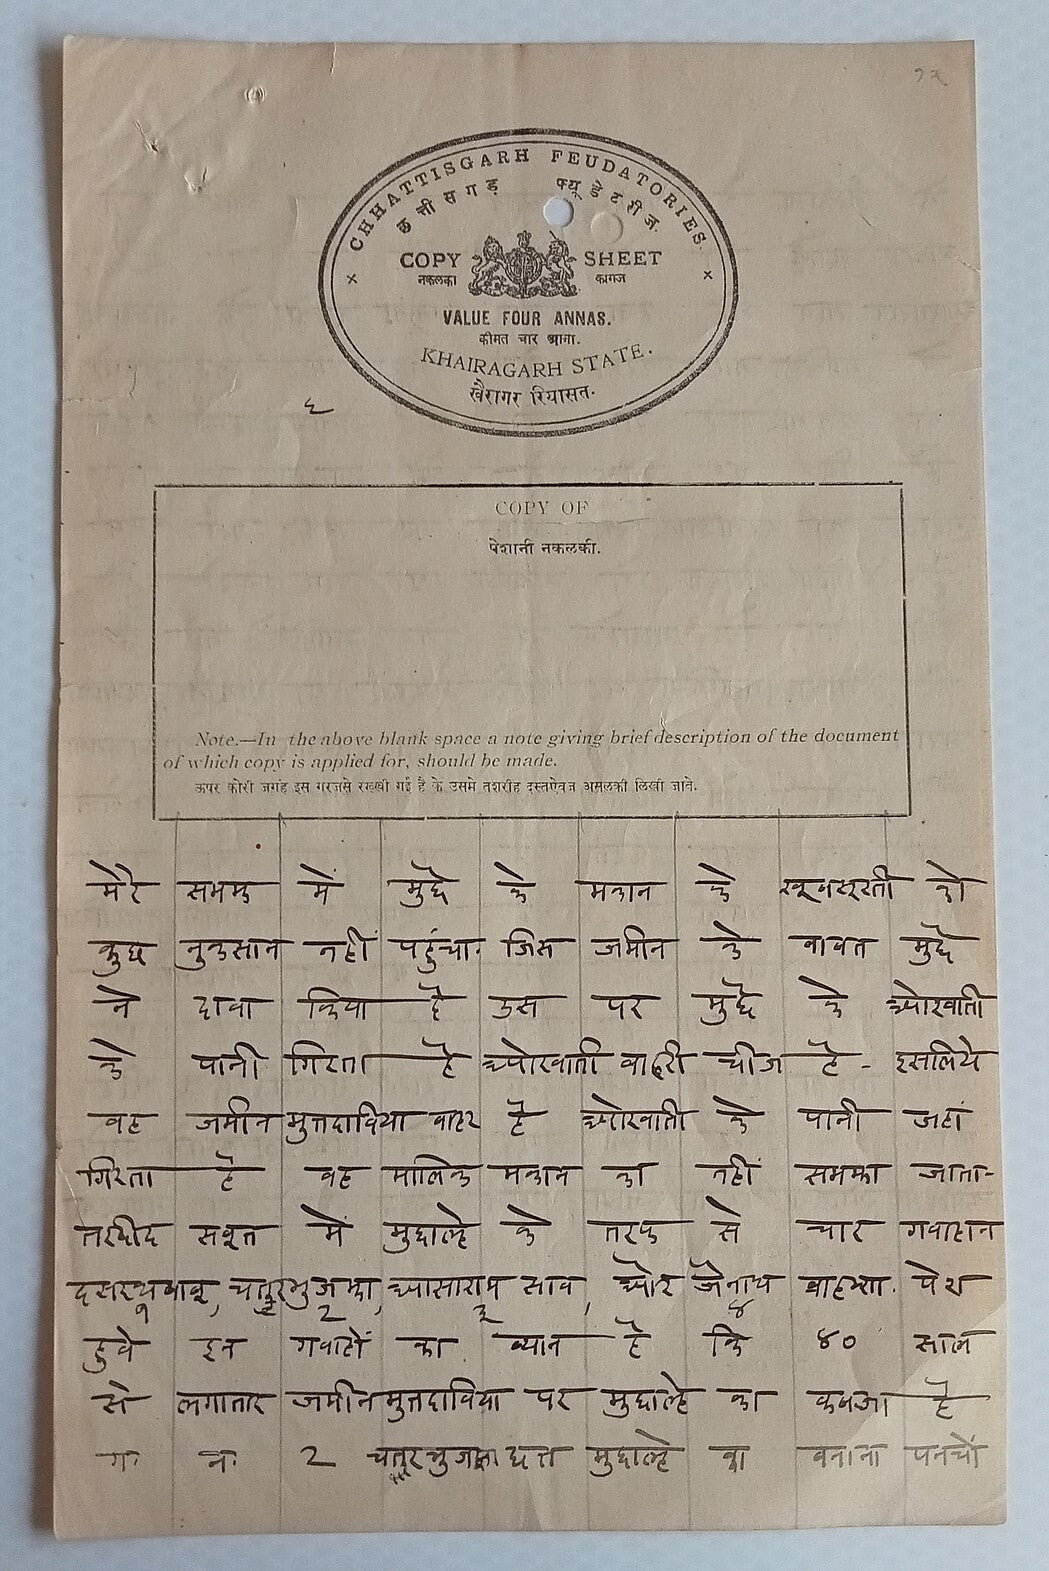 १२
CHHATTISGARH FEUDATORIES
छत्तीसगड़ फ्यूडेटरीज.
COPY SHEET
नकलका कागज
VALUE FOUR ANNAS.
कीमत चार आना.
KHAIRAGARH STATE.
खैरागर रियासत.
६
COPY OF
पेशानी नकलकी.
Note.—In the above blank space a note giving brief description of the document
of which copy is applied for, should be made.
ऊपर कोरी जगंह इस गरजसे रख्खी गई है के उसमे तशरीह दस्तऐवज अमलकी लिखी जावे.
मेरे समझ में मुद्दै के मकान के खूबसूरती को
कुछ नुकसान नहीं पहुंचा. जिस जमीन के बाबत मुद्दै
ने दावा किया है उस पर मुद्दै के ओरवाती
के पानी गिरता है ओरवाती बाहरी चीज है - इसलिये
वह जमीन मुत्तदाविया बाहर है ओरवाती के पानी जहां
गिरता है वह मालिक मकान का नहीं समझा जाता-
तरदीद सबूत में मुद्दाले के तरफ से चार गवाहान
चतुरभुज झा, आसाराम साव, और बैजनाथ पेश
१ २ ३ ४
हुवे इन गवाहों का ब्यान है कि ४० साल
से लगातार जमीन मुत्तदाविया पर मुद्दाले का कबजा है
ग. नं. 2 चतुरभुज झा मुद्दाले का बनाना